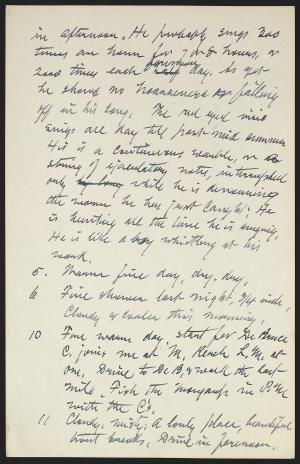 in afternoon. He probably sings 200
times an hour for 7 or 8 hours, or
2000 times each forenoon day. As yet
he shows no hoarseness or falling
off in his song. The red eyed vireo
sings all day till past mid summer
His is a continuous warble, or a
string of ejaculatory notes, interrupted
only while he is devouring
the worm he has just caught. He
is hunting all the time he is singing,
He is like a boy whistling at his
work.
5. Warm fine day, dry, dry,
6 Fine shower last night, 3/4 inch,
Cloudy & cooler this morning,
10 Fine warm day, start for De Bruce
C. joins me at M. Reach L. M. at
one, Drive to De B. & reach the
Fish the in P.M.
with the C's.
11 Cloudy, misty: a lovely place, beautiful
trout brooks. Drive in forenoon.